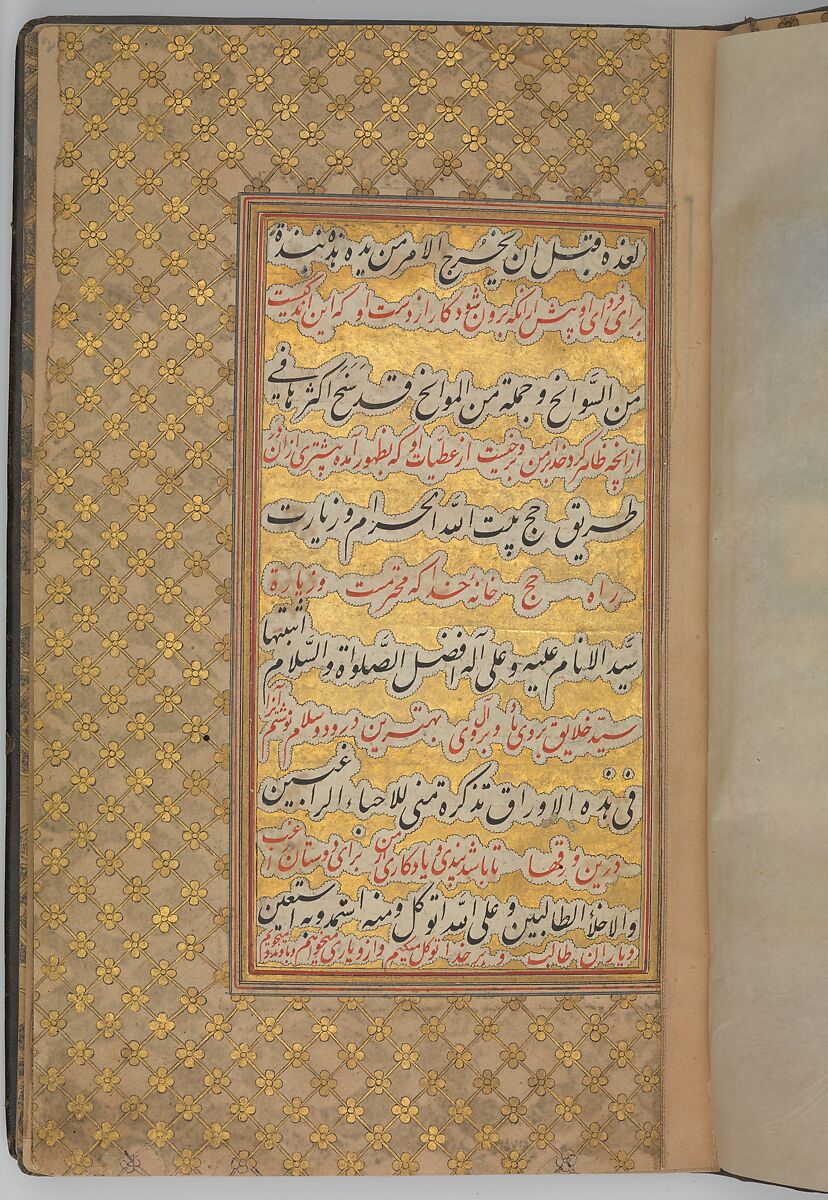 لغده قبل ان یخرج الامر من یده هذه نبذة
برای فردای او پیش ازانکه برون شود کار از دست او که این اندکیست
من السَّوانح و جملة من الموانح قد سَنَحَ اکثرها فی
ازانچه ظاهر کرد خدا بمن و برخیست از عطیات او که بظهور آمده بیشتری ازان در
طریق حج بیت الله الحرام و زیارت
راه حج خانهٔ خدا که محترمست و زیارة
سیّد الانام علیه و علی آله افضل الصَّلواة و السَّلام اثبتها
سیّد خلایق بروی باد و بر آل وی بهترین درود و سلام نوشتم آنرا
فی هذه الاوراق تذکرة منی للاحباء الراغبین
درین ورقها تا باشد پندی و یادکاری از من برای دوستان راغب
والاخلأ الطالبین و علی الله اتوکل و منه استمد و به استعین
و یاران طالب و بر خدا توکل میکنم و ازو یاری میخواهم و باو مدد میجویم